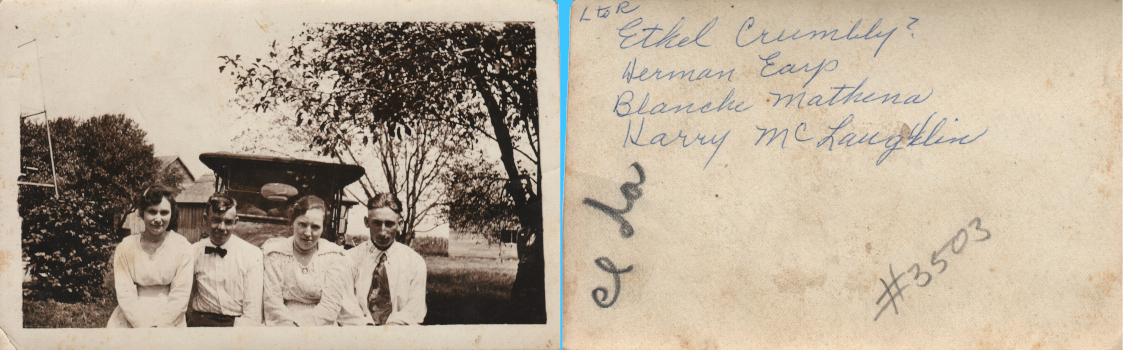 L to R
Ethel Crumbly?
Herman Earp
Blanche Mathena
Harry McLaughlin
#3503